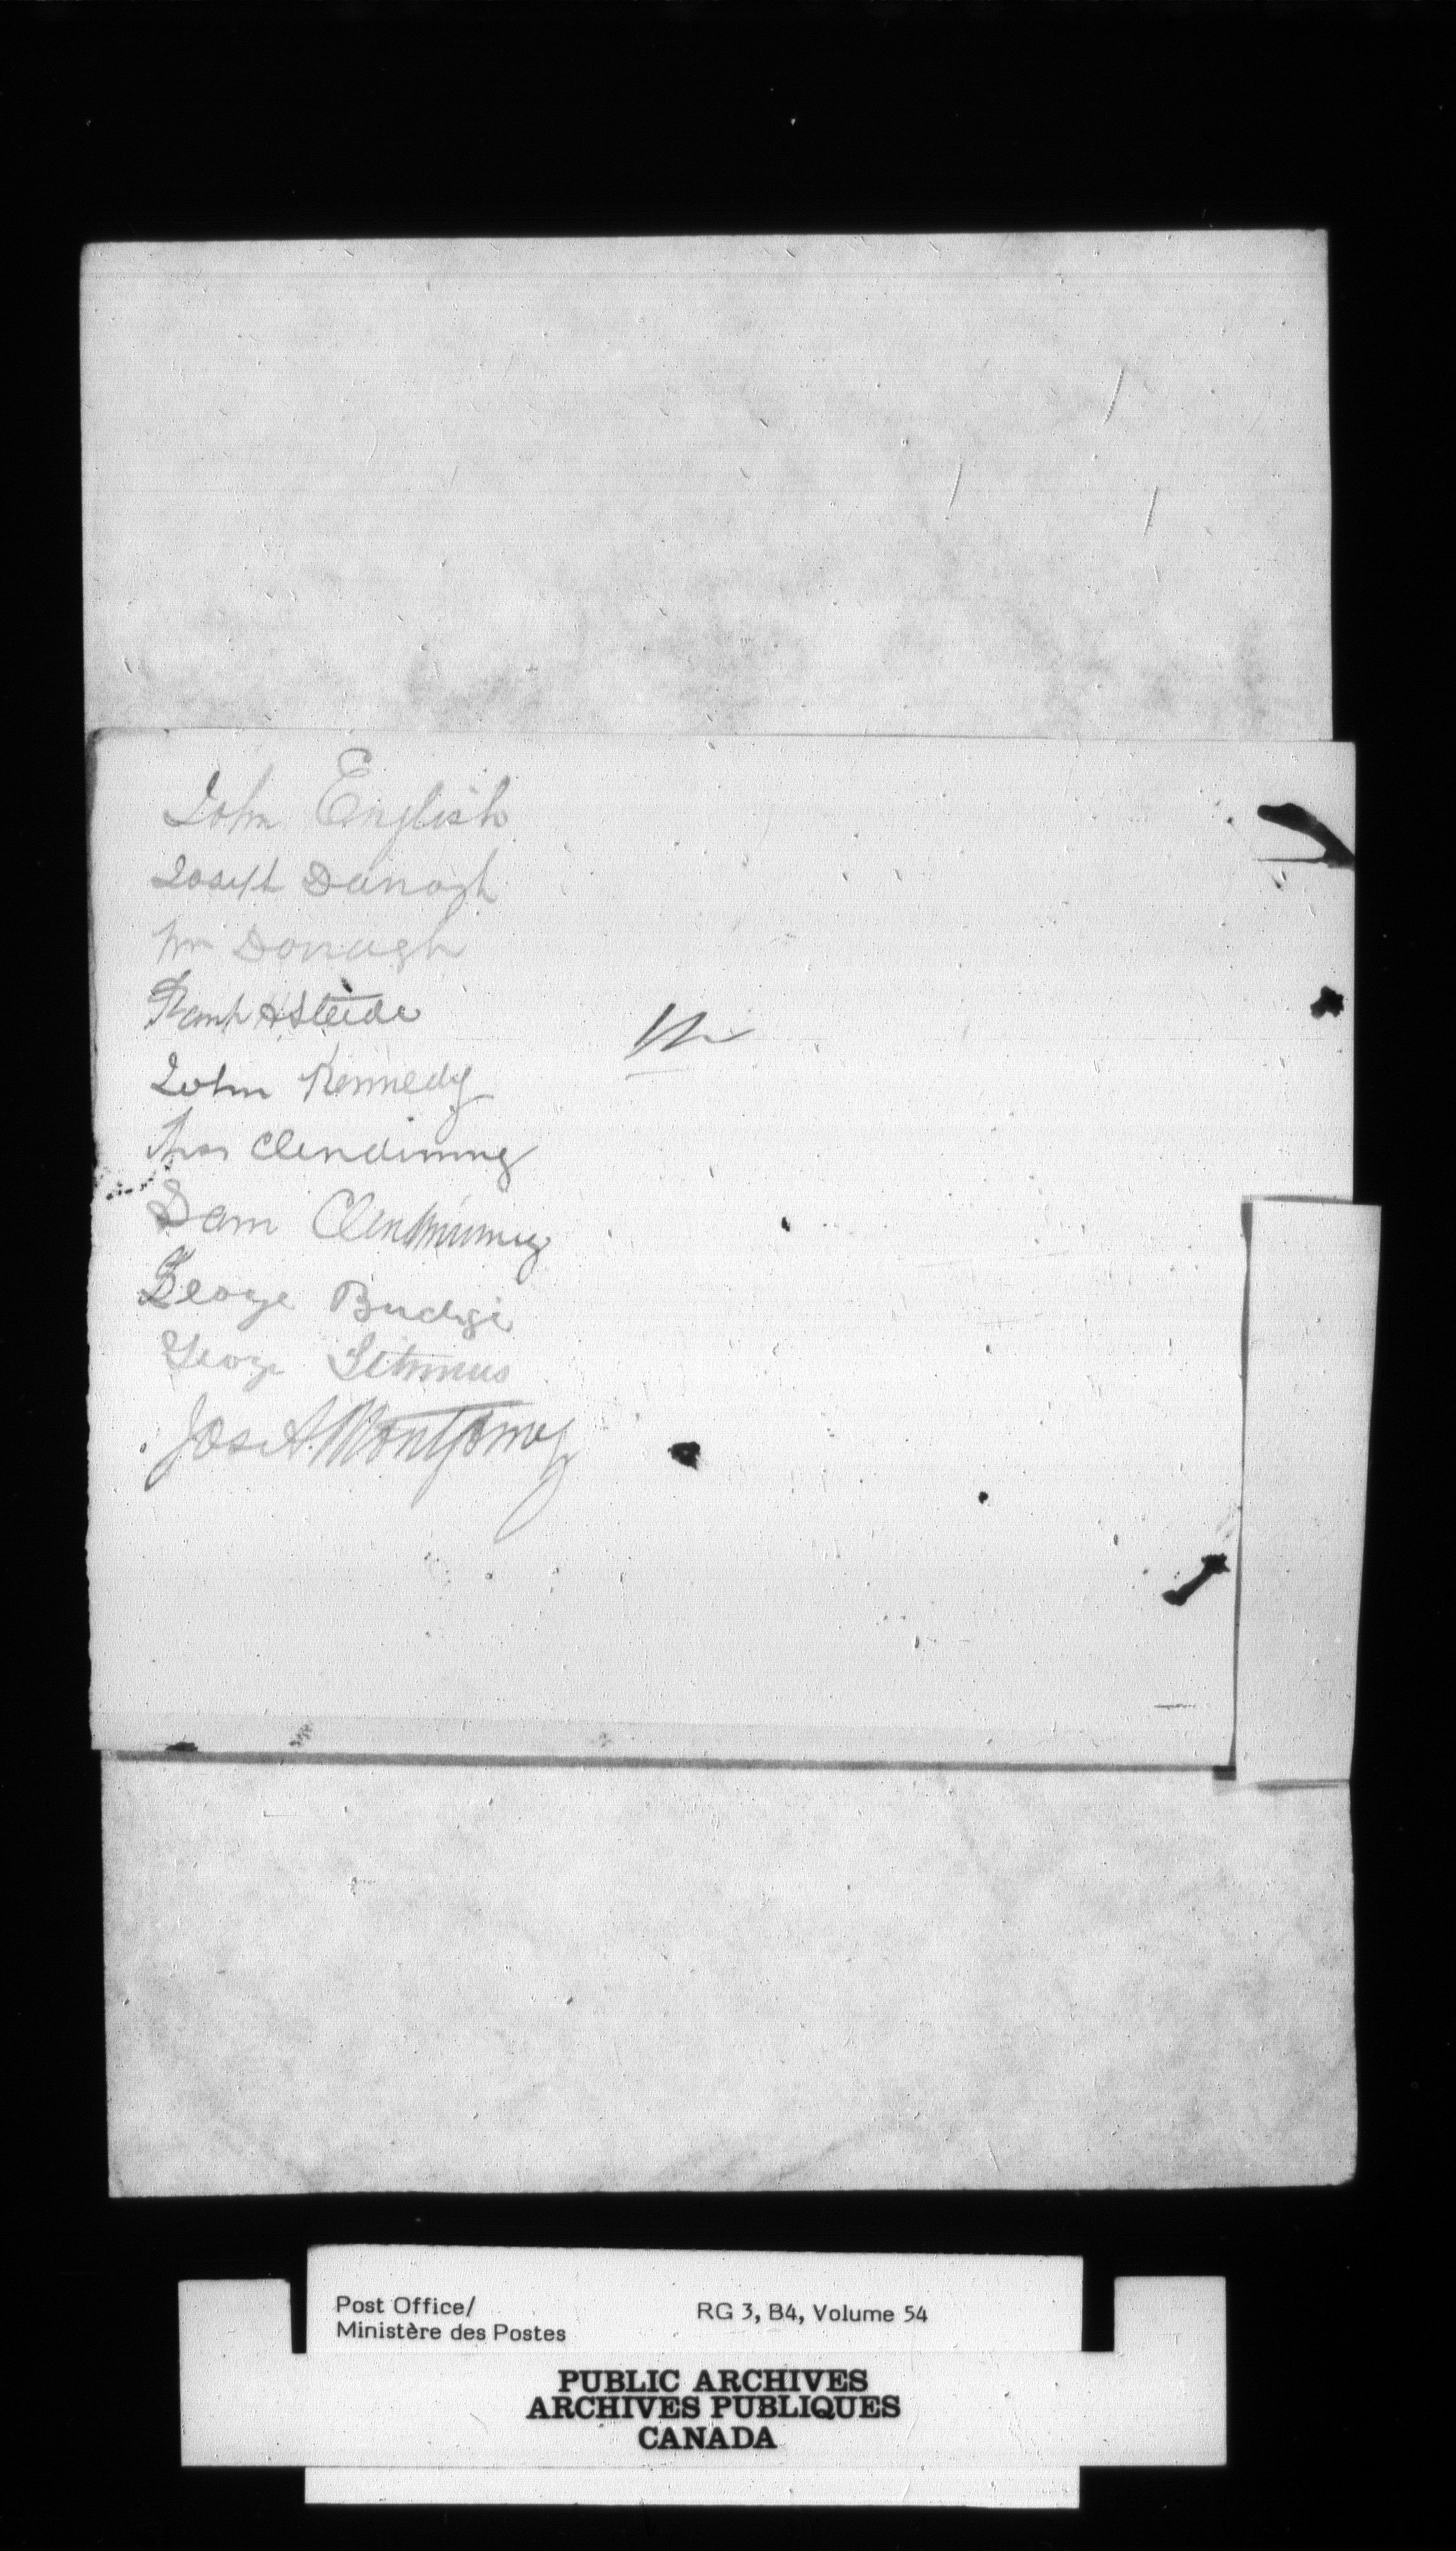 John English
Joseph Danogh
Wm Donagh
Frank H Steide
John Kennedy
Thos Clendinning
Sam Clendinning
George Budge
George
Jos A. Montgomery
Post Office/
Ministère des Postes
RG 3, B4, Volume 54
PUBLIC ARCHIVES
ARCHIVES PUBLIQUES
CANADA